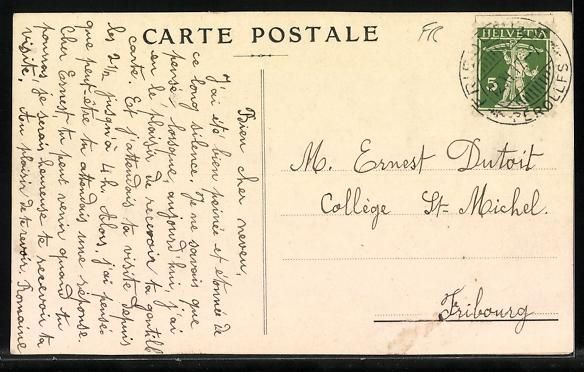 CARTE POSTALE
Frc
HELVETIA
5
PÉROLLES
Bien cher neveu,
J'ai été bien peinée et étonnée de
ce long silence. Je ne savais que
penser lorsque, aujourd'hui, j'ai
eu le plaisir de recevoir ta gentille
carte. Et j'attendais ta visite depuis
les 2½ jusqu'à 4 h. Alors j'ai pensé
que peut-être tu attendais une réponse.
Cher Ernest tu peut venir quand tu
pourras, je serais heureuse de recevoir ta
visite. Au plaisir de te revoir. Romaine
M. Ernest Dutoit
Collège St-Michel.
Fribourg